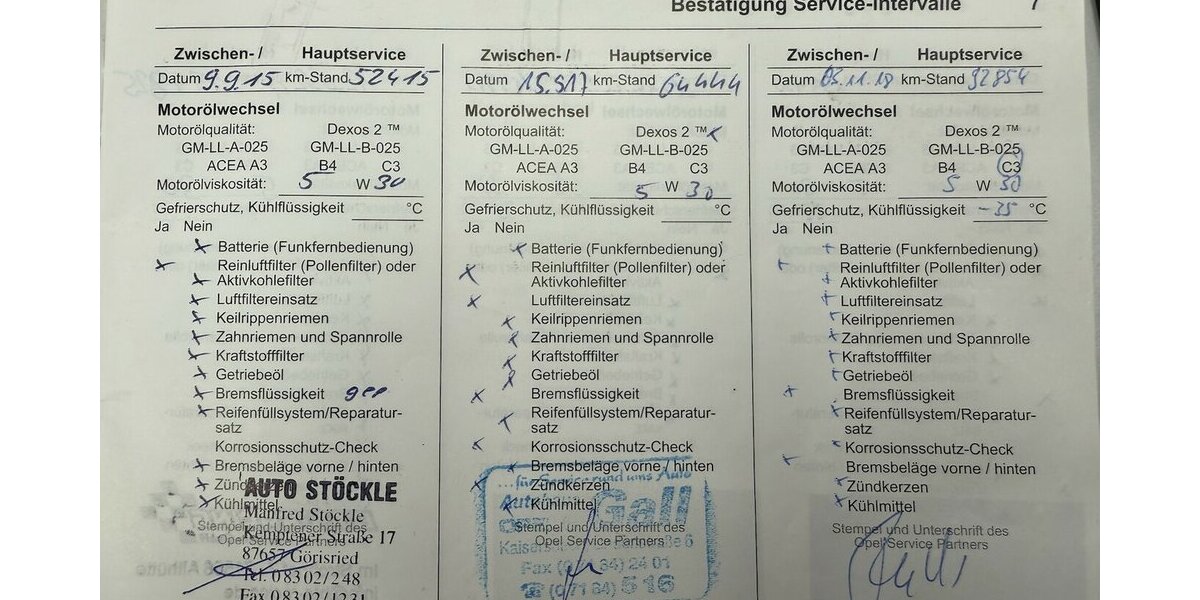 Bestätigung Service-Intervalle 7
Zwischen- / Hauptservice
Datum 9.9.15 km-Stand 52415
Motorölwechsel
Motorölqualität: Dexos 2 ™
GM-LL-A-025 GM-LL-B-025
ACEA A3 B4 C3
Motorölviskosität: 5 W 30
Gefrierschutz, Kühlflüssigkeit °C
Ja Nein
Batterie (Funkfernbedienung)
Reinluftfilter (Pollenfilter) oder
Aktivkohlefilter
Luftfiltereinsatz
Keilrippenriemen
Zahnriemen und Spannrolle
Kraftstofffilter
Getriebeöl
Bremsflüssigkeit
Reifenfüllsystem/Reparatur-
satz
Korrosionsschutz-Check
Bremsbeläge vorne / hinten
Zündkerzen
Kühlmittel
Stempel und Unterschrift des
Opel Service Partners
AUTO STÖCKLE
Manfred Stöckle
Kemptener Straße 17
87657 Görisried
Tel. 08302/248
Fax 08302/1231
Zwischen- / Hauptservice
Datum 15.917 km-Stand 64444
Motorölwechsel
Motorölqualität: Dexos 2 ™
GM-LL-A-025 GM-LL-B-025
ACEA A3 B4 C3
Motorölviskosität: 5 W 30
Gefrierschutz, Kühlflüssigkeit °C
Ja Nein
Batterie (Funkfernbedienung)
Reinluftfilter (Pollenfilter) oder
Aktivkohlefilter
Luftfiltereinsatz
Keilrippenriemen
Zahnriemen und Spannrolle
Kraftstofffilter
Getriebeöl
Bremsflüssigkeit
Reifenfüllsystem/Reparatur-
satz
Korrosionsschutz-Check
Bremsbeläge vorne / hinten
Zündkerzen
Kühlmittel
Stempel und Unterschrift des
Opel Service Partners
...für Service rund ums Auto
Gall
Fax (0 71 64) 24 01
☎ (0 71 64) 5 16
Zwischen- / Hauptservice
Datum 05.11.18 km-Stand 92854
Motorölwechsel
Motorölqualität: Dexos 2 ™
GM-LL-A-025 GM-LL-B-025
ACEA A3 B4 C3
Motorölviskosität: 5 W 30
Gefrierschutz, Kühlflüssigkeit -35 °C
Ja Nein
Batterie (Funkfernbedienung)
Reinluftfilter (Pollenfilter) oder
Aktivkohlefilter
Luftfiltereinsatz
Keilrippenriemen
Zahnriemen und Spannrolle
Kraftstofffilter
Getriebeöl
Bremsflüssigkeit
Reifenfüllsystem/Reparatur-
satz
Korrosionsschutz-Check
Bremsbeläge vorne / hinten
Zündkerzen
Kühlmittel
Stempel und Unterschrift des
Opel Service Partners